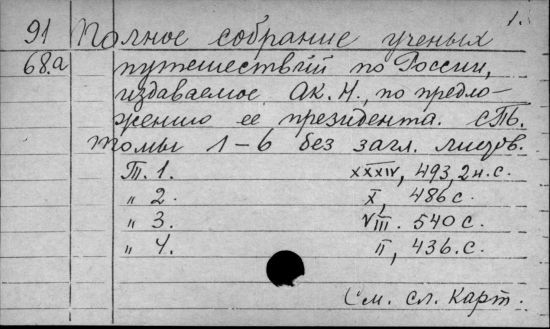 1.
91 Полное собрание ученых
68.а путешествий по России,
издаваемое Ак. Н., по предло-
жению ее президента. СПб.
томы 1-6 без загл. листов.
Т. 1. XXXIV, 493, 2 н. с.
" 2. X, 486 с.
" 3. VIII. 540 с.
" 4. II, 436. с.
См. сл. карт.